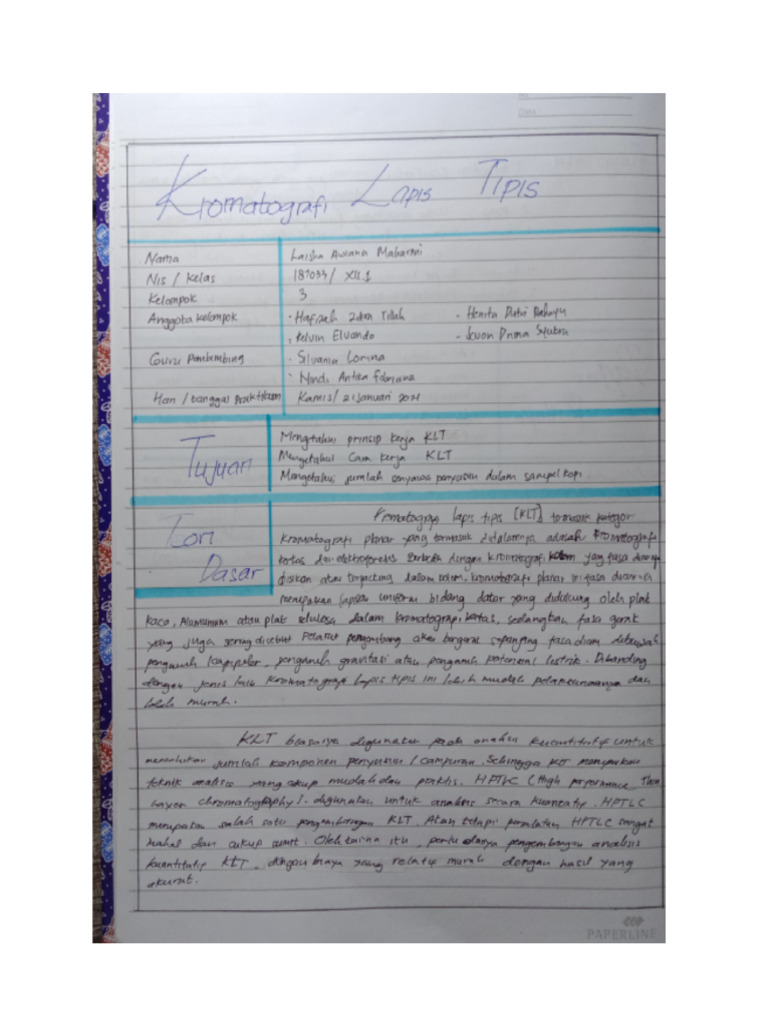 No.
Date
Kromatografi Lapis Tipis
Nama Laisha Awiana Maharani
Nis / Kelas 181033/ XII.1
Kelompok 3
Anggota Kelompok · Hafizah Zikra Tillah - Henita Putri Rahayu
· Kelvin Elvando - Jevon Prima Syukra
Guru Pembimbing · Silvania Lorina
· Nindi Antika Febriana
Hari / tanggal Praktikum Kamis/ 21 Januari 2021
Tujuan
Mengetahui prinsip kerja KLT
Mengetahui Cara kerja KLT
Mengetahui jumlah senyawa penyusun dalam sampel kopi.
Teori Dasar
Kromatografi lapis tipis [KLT] termasuk kategori
kromatografi planar yang termasuk didalamnya adalah kromatografi
kertas dan elektroforesis. Berbeda dengan kromatografi kolom yang fasa diamnya
diisikan atau terpacking dalam kolom, kromatografi planar ini fasa diamnya
merupakan lapisan uniform bidang datar yang didukung oleh plat
kaca, Alumunium atau plat selulosa dalam kromatografi kertas, sedangkan fasa gerak
yang juga sering disebut Pelarut pengembang akan bergerak sepanjang fasa diam dibawah
pengaruh kapipuler, pengaruh gravitasi atau pengaruh potensial listrik. Dibanding
dengan jenis lain kromatografi lapis tipis ini lebih mudah pelaksanaannya dan
lebih murah.
KLT biasanya digunakan pada analisis kuantitatif untuk
menentukan jumlah komponen penyusun / campuran. Sehingga KLT merupakan
teknik analisis yang cukup mudah dan praktis. HPTLC (High performance Thin
Layer chromatography). digunakan untuk analisis secara kuantatif. HPTLC
merupakan salah satu pengembangan KLT. Akan tetapi peralatan HPTLC sangat
mahal dan cukup rumit. Oleh karena itu, perlu adanya pengembangan analisis
kuantitatif KLT, dengan biaya yang relatif murah dengan hasil yang
akurat.
PAPERLINE